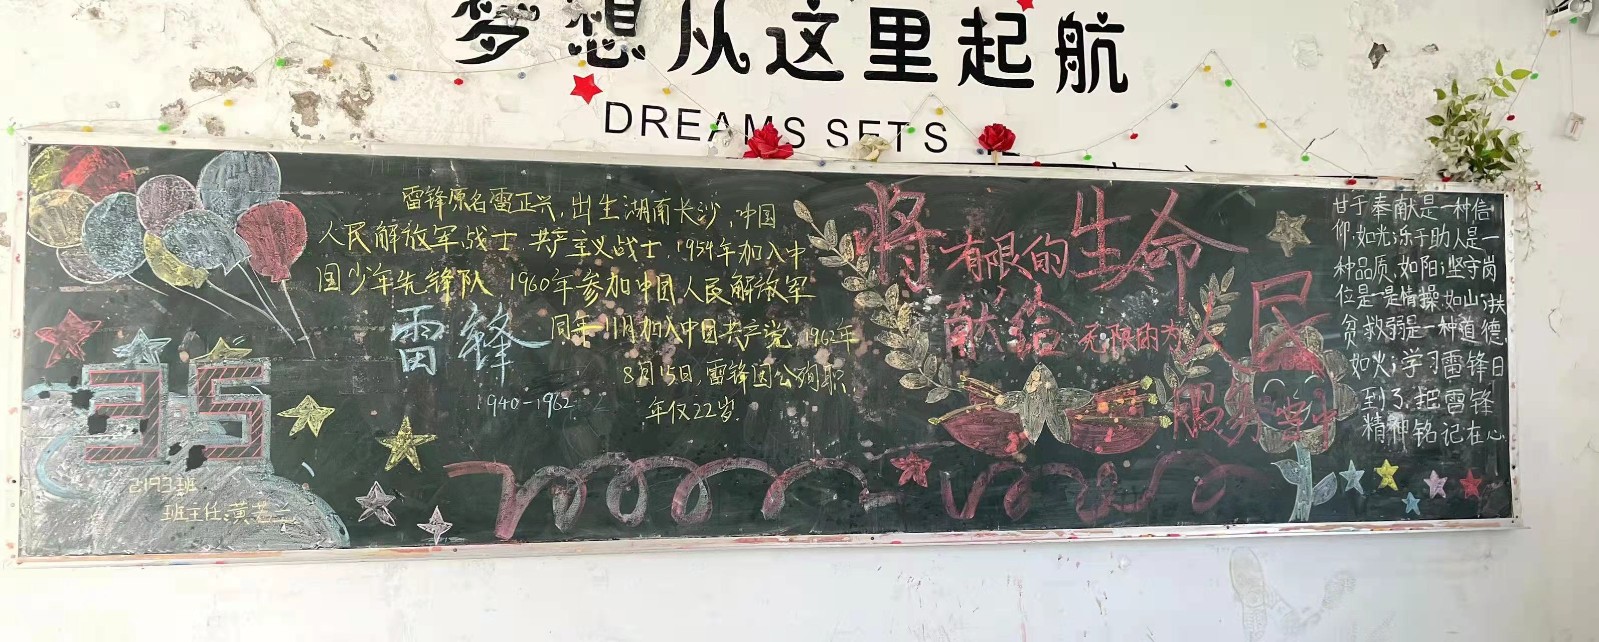 梦想从这里起航
DREAMS SETS
雷锋原名雷正兴,出生湖南长沙,中国
人民解放军战士,共产主义战士,1954年加入中
国少年先锋队 1960年参加中国人民解放军
同年11月加入中国共产党 1962年
8月15日,雷锋因公殉职
年仅22岁.
雷锋
1940-1962
35
2193班
班主任:黄
将有限的生命
献给无限的为人民
服务当中
甘于奉献是一种信
仰,如光;乐于助人是一
种品质,如阳;坚守岗
位是一是情操,如山;扶
贫救弱是一种道德
如火;学习雷锋日
到了,把雷锋
精神铭记在心.